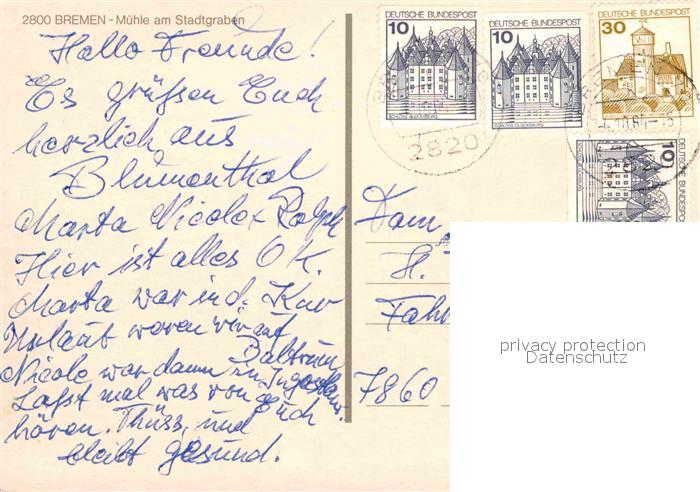 2800 BREMEN - Mühle am Stadtgraben
Hallo Freunde!
Es grüßen Euch
herzlich aus
Blumenthal
Marta Nicole + Ralph
Hier ist alles OK.
Marta war in d. Kur
Urlaub waren wir auf
Baltrum,
Nicole war dann in Jugoslaw.
Laßt mal was von Euch
hören. Thüss, und
bleibt gesund.
DEUTSCHE BUNDESPOST
10
SCHLOSS GLÜCKSBURG
DEUTSCHE BUNDESPOST
10
SCHLOSS GLÜCKSBURG
DEUTSCHE BUNDESPOST
30
DEUTSCHE BUNDESPOST
10
2820
Fam.
H.
Fah
7860
privacy protection
Datenschutz